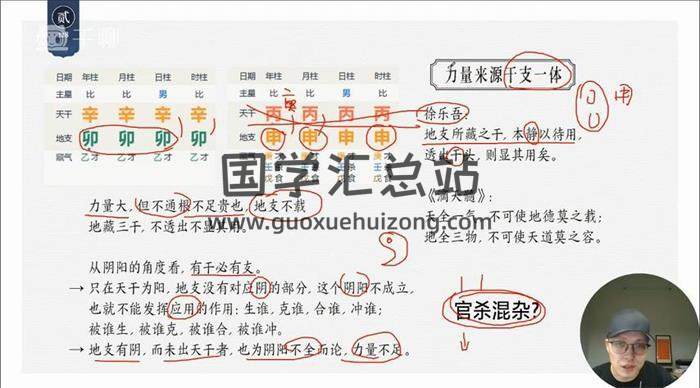 贰
千聊
日期 年柱 月柱 日柱 时柱
主星 比 比 男 比
天干 辛 辛 辛 辛
地支 卯 卯 卯 卯
藏气 乙才 乙才 乙才 乙才
日期 年柱 月柱 日柱 时柱
主星 比 比 男 比
天干 丙 丙 丙 丙
地支 申 申 申 申
庚才
壬杀 壬杀 壬杀
戊食 戊食 戊食 戊食
力量来源干支一体
徐乐吾:
地支所藏之干,本静以待用,
透出干头,则显其用矣。
《滴天髓》:
天全一气,不可使地德莫之载;
地全三物,不可使天道莫之容。
力量大,但不通根不足贵也,地支不载
地藏三干,不透出不显其用。
从阴阳的角度看,有干必有支。
→ 只在天干为阳,地支没有对应阴的部分,这个阴阳不成立,
也就不能发挥应用的作用:生谁,克谁,合谁,冲谁;
被谁生,被谁克,被谁合,被谁冲。
→ 地支有阴,而未出天干者,也为阴阳不全而论,力量不足。
官杀混杂?
国学汇总站
www.guoxuehuizong.com